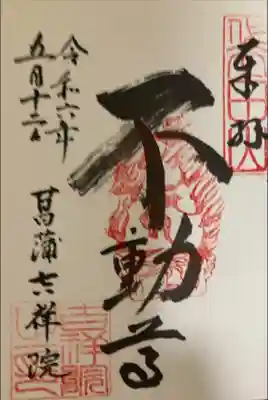 奉拝
不動尊
令和六年
五月十二日
菖蒲吉祥院